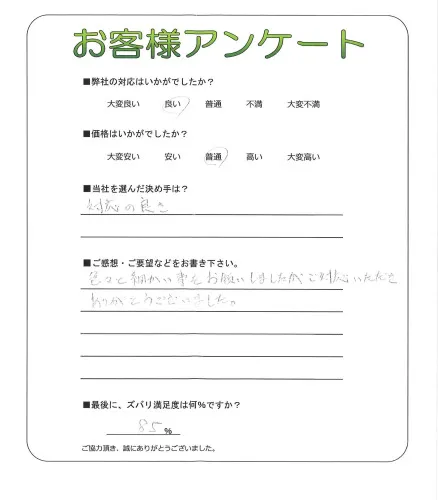 お客様アンケート
■弊社の対応はいかがでしたか？
大変良い 良い 普通 不満 大変不満
■価格はいかがでしたか？
大変安い 安い 普通 高い 大変高い
■当社を選んだ決め手は？
対応の良さ
■ご感想・ご要望などをお書き下さい。
色々と細かい事をお願いしましたがご対応いただき
ありがとうございました。
■最後に、ズバリ満足度は何%ですか？
85%
ご協力頂き、誠にありがとうございました。